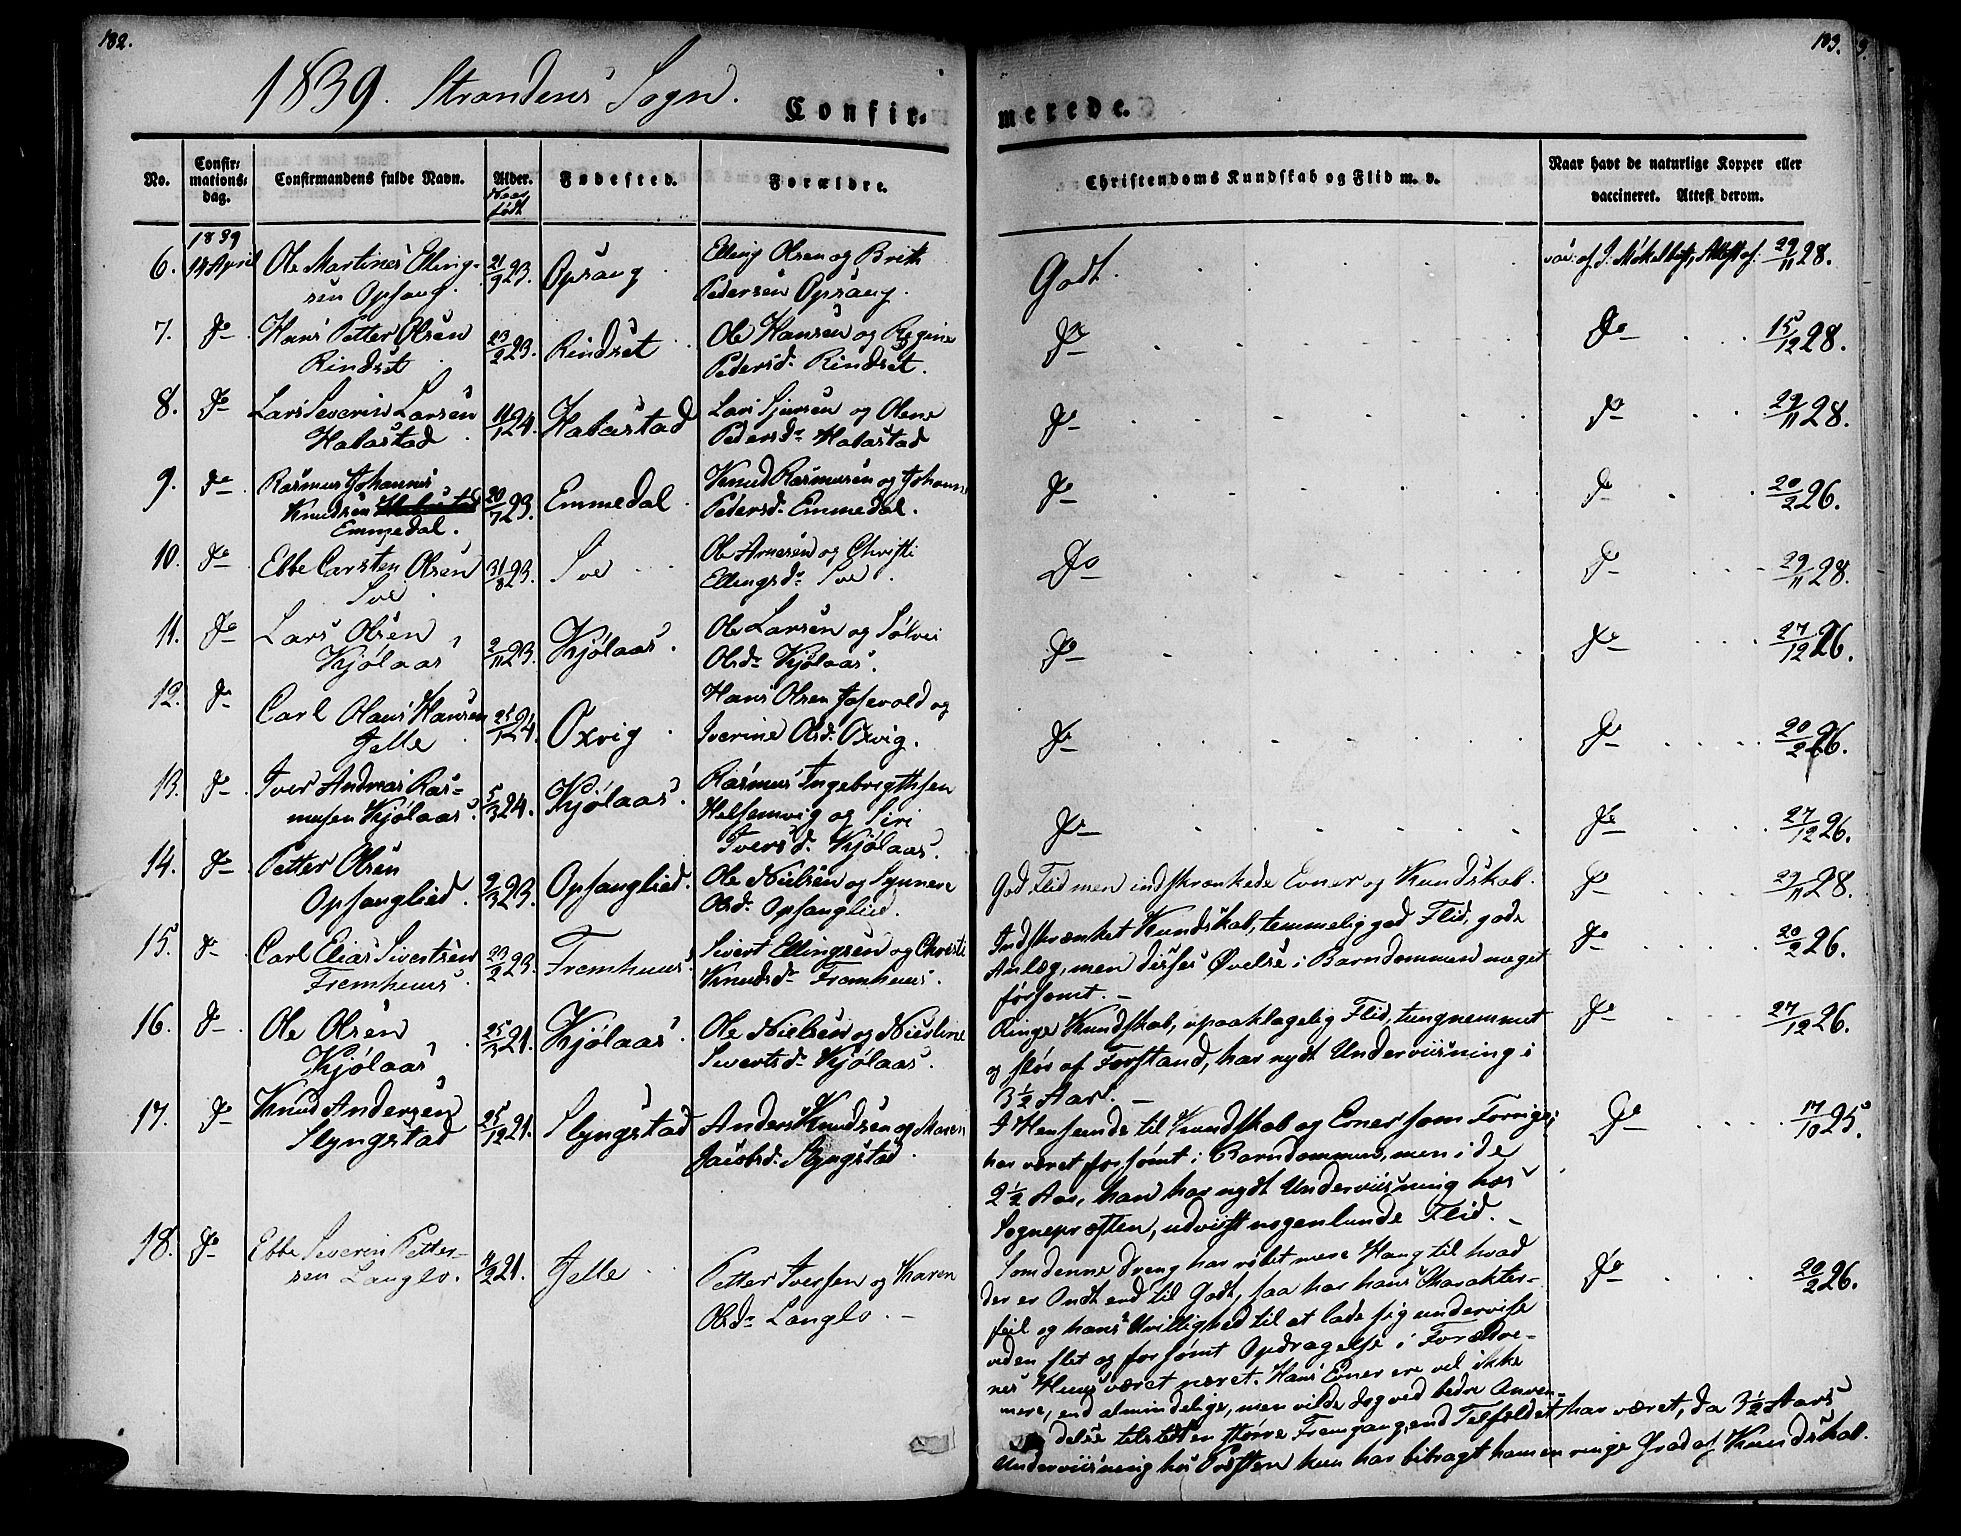 182.
183.
1839. Strandens Sogn.
Confirmerede.
No.
Confirmations-dag.
Confirmandens fulde Navn.
Alder.
Naar født
Fødested.
Forældre.
Christendoms Kundskab og Flid m. v.
Naar havt de naturlige Kopper eller
vaccineret. Attest derom.
1839
6. 14 April Ole Martinus Elling- 21/9 23. Opsang Elling Olsen og Brith Godt. vac. af J. Møkelbust, Attest af 29/11 28.
sen Opsang. Pedersen Opsang.
7. Do Hans Petter Olsen 23/2 23. Rindset Ole Hansen og Regine Do Do 15/12 28.
Rindset Pedersd. Rindset.
8. Do Lars Severin Larsen 11/1 24. Habostad Lars Sjursen og Olene Do Do 29/11 28.
Habostad Pedersdr Habostad
9. Do Rasmus Johannes 20/7 23. Emmedal Knud Rasmusen og Johanne Do Do 20/2 26.
Knudsen Pedersd. Emmedal.
Emmedal.
10. Do Ebbe Carsten Olsen 31/8 23. Sve Ole Arnesen og Christi Do Do 29/11 28.
Sve Ellingsdr Sve.
11. Do Lars Olsen 2/11 23. Kjølaas. Ole Larsen og Sølvi Do Do 27/12 26.
Kjølaas Olsdr Kjølaas.
12. Do Carl Olaus Hansen 25/1 24. Oxvig Hans Olsen og Do Do 20/2 26.
Jelle Iverine Olsd. Oxvig.
13. Do Iver Andreas Ras- 5/3 24. Kjølaas. Rasmus Ingebrigthsen Do Do 27/12 26.
musen Kjølaas. Helsemvig og Siri
Iversd. Kjølaas.
14. Do Petter Olsen 9/3 23. Opsanglied. Ole Nielsen og Synneve God Flid men indskrænkede Evner og Kundskab. Do 29/11 28.
Opsanglied. Olsd. Opsanglied.
15. Do Carl Elias Sivertsen 23/2 23. Fremhuus. Sivert Ellingsen og Christi Indskrænket Kundskab, temmelig god Flid, gode Do 20/2 26.
Fremhuus. Knudsdr Fremhuus. Anlæg, men disses Øvelse i Barndommen meget
forsømt. –
16. Do Ole Olsen 25/3 21. Kjølaas. Ole Nielsen og Nicoline Ringe Kundskab, upaaklagelig Flid, tungnemmet Do 27/12 26.
Kjølaas Sivertsdr Kjølaas. og sløv af Forstand, har nydt Underviisning i
3½ Aar. –
17. Do Knud Andersen 25/12 21. Slyngstad Anders Knudsen og Maren I Henseende til Kundskab og Evner som Forrige; Do 17/10 25.
Slyngstad Jacobsd. Slyngstad. har været forsømt i Barndommen, men i de
2½ Aar, han har nydt Underviisning hos
Sognepræsten, udviist nogenlunde Flid. –
18. Do Ebbe Severin Petter- 4/2 21. Jelle Petter Iversen og Karen Som denne Dreng har røbet mere Hang til hvad Do 20/2 26.
sen Langlo. Olsdr Langlo. – der er Ondt end til Godt, saa har hans Charakter-
feil og hans Uvillighed til at lade sig undervise
ved en slet og forsømt Opdragelse i Forældre-
nes Huus været næret. Hans Evner ere vel ikke
mere, end almindelige, men vilde dog ved bedre Anven-
delse tilstedt en større Fremgang, end Tilfældet har været, da 3½ Aars
Underviisning hos Præsten kun har bibragt ham en ringe Grad af Kundskab.